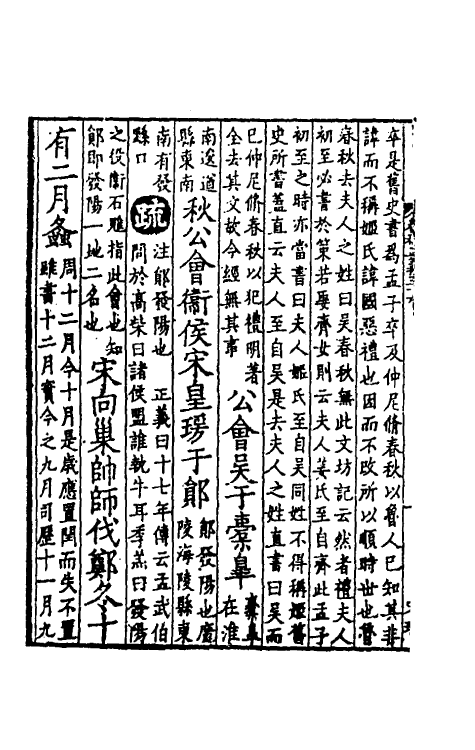 卒是舊史書為孟子卒及仲尼脩春秋以魯人已知其非
諱而不稱姬氏諱國惡禮也因而不改所以順時世也魯
春秋去夫人之姓曰吳春秋無此文坊記云然者禮夫人
初至必書於策若娶齊女則云夫人姜氏至自齊此孟子
初至之時亦當書曰夫人姬氏至自吳同姓不得稱姬舊
史所書蓋直云夫人至自吳是去夫人之姓直書曰吳而
已仲尼脩春秋以犯禮明著
全去其文故今經無其事
公會吳于橐皐
橐皐
在淮
南逡遒
縣東南
秋公會衞侯宋皇瑗于鄖
鄖發陽也廣
陵海陵縣東
南有發
繇口
疏
注鄖發陽也 正義曰十七年傳云孟武伯
問於高柴曰諸侯盟誰執牛耳季羔曰發陽
之役衞石魋指此會也知
鄖即發陽一地二名也
宋向巢帥師伐鄭冬十
有二月螽
周十二月今十月是歲應置閏而失不置
雖書十二月實今之九月司歷十一月九